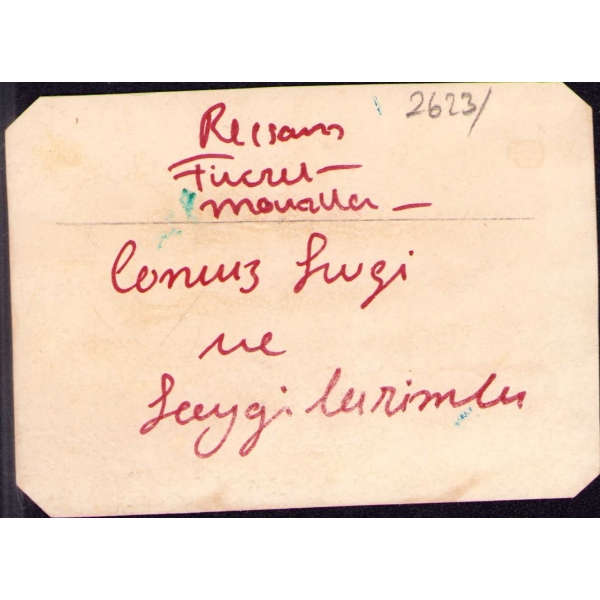 2623/
Ressam
Fikret –
Moualla –
Sonsuz Sevgi
ve
Saygilarimla